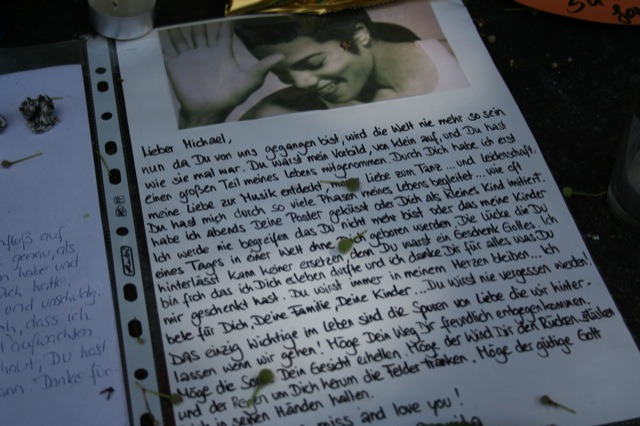 Lieber Michael,
nun da Du von uns gegangen bist, wird die Welt nie mehr so sein
wie sie mal war. Du warst mein Vorbild, von klein auf, und Du hast
einen großen Teil meines Lebens mitgenommen. Durch Dich habe ich erst
meine Liebe zur Musik entdeckt, Liebe zum Tanz... und Leidenschaft.
Du hast mich durch so viele Phasen meines Lebens begleitet... wie oft
habe ich abends Deine Poster geküsst oder Dich als kleines Kind imitiert.
Ich werde nie begreifen das Du nicht mehr bist oder das meine Kinder
eines Tages in einer Welt ohne Dich geboren werden. Die Lücke die Du
hinterlässt kann keiner ersetzen, denn Du warst ein Geschenk Gottes. Ich
bin froh das ich Dich erleben durfte und ich danke Dir für alles was Du
mir geschenkt hast. Du wirst immer in meinem Herzen bleiben... Ich
bete für Dich, Deine Familie, Deine Kinder... Du wirst nie vergessen werden!
Das einzig wichtige im Leben sind die Spuren von Liebe die wir hinter-
lassen wenn wir gehen! Möge Dein Weg Dir freundlich entgegenkommen,
Möge die Dein Gesicht erhellen. Möge der Wind Dir den Rücken stärken
und der Regen um Dich herum die Felder tränken. Möge der gütige Gott
Dich in seinen Händen halten.
miss and love you!
auf
genau, als
habe und
Dich hatte.
und
ch, dass ich
Du hast
Danke für